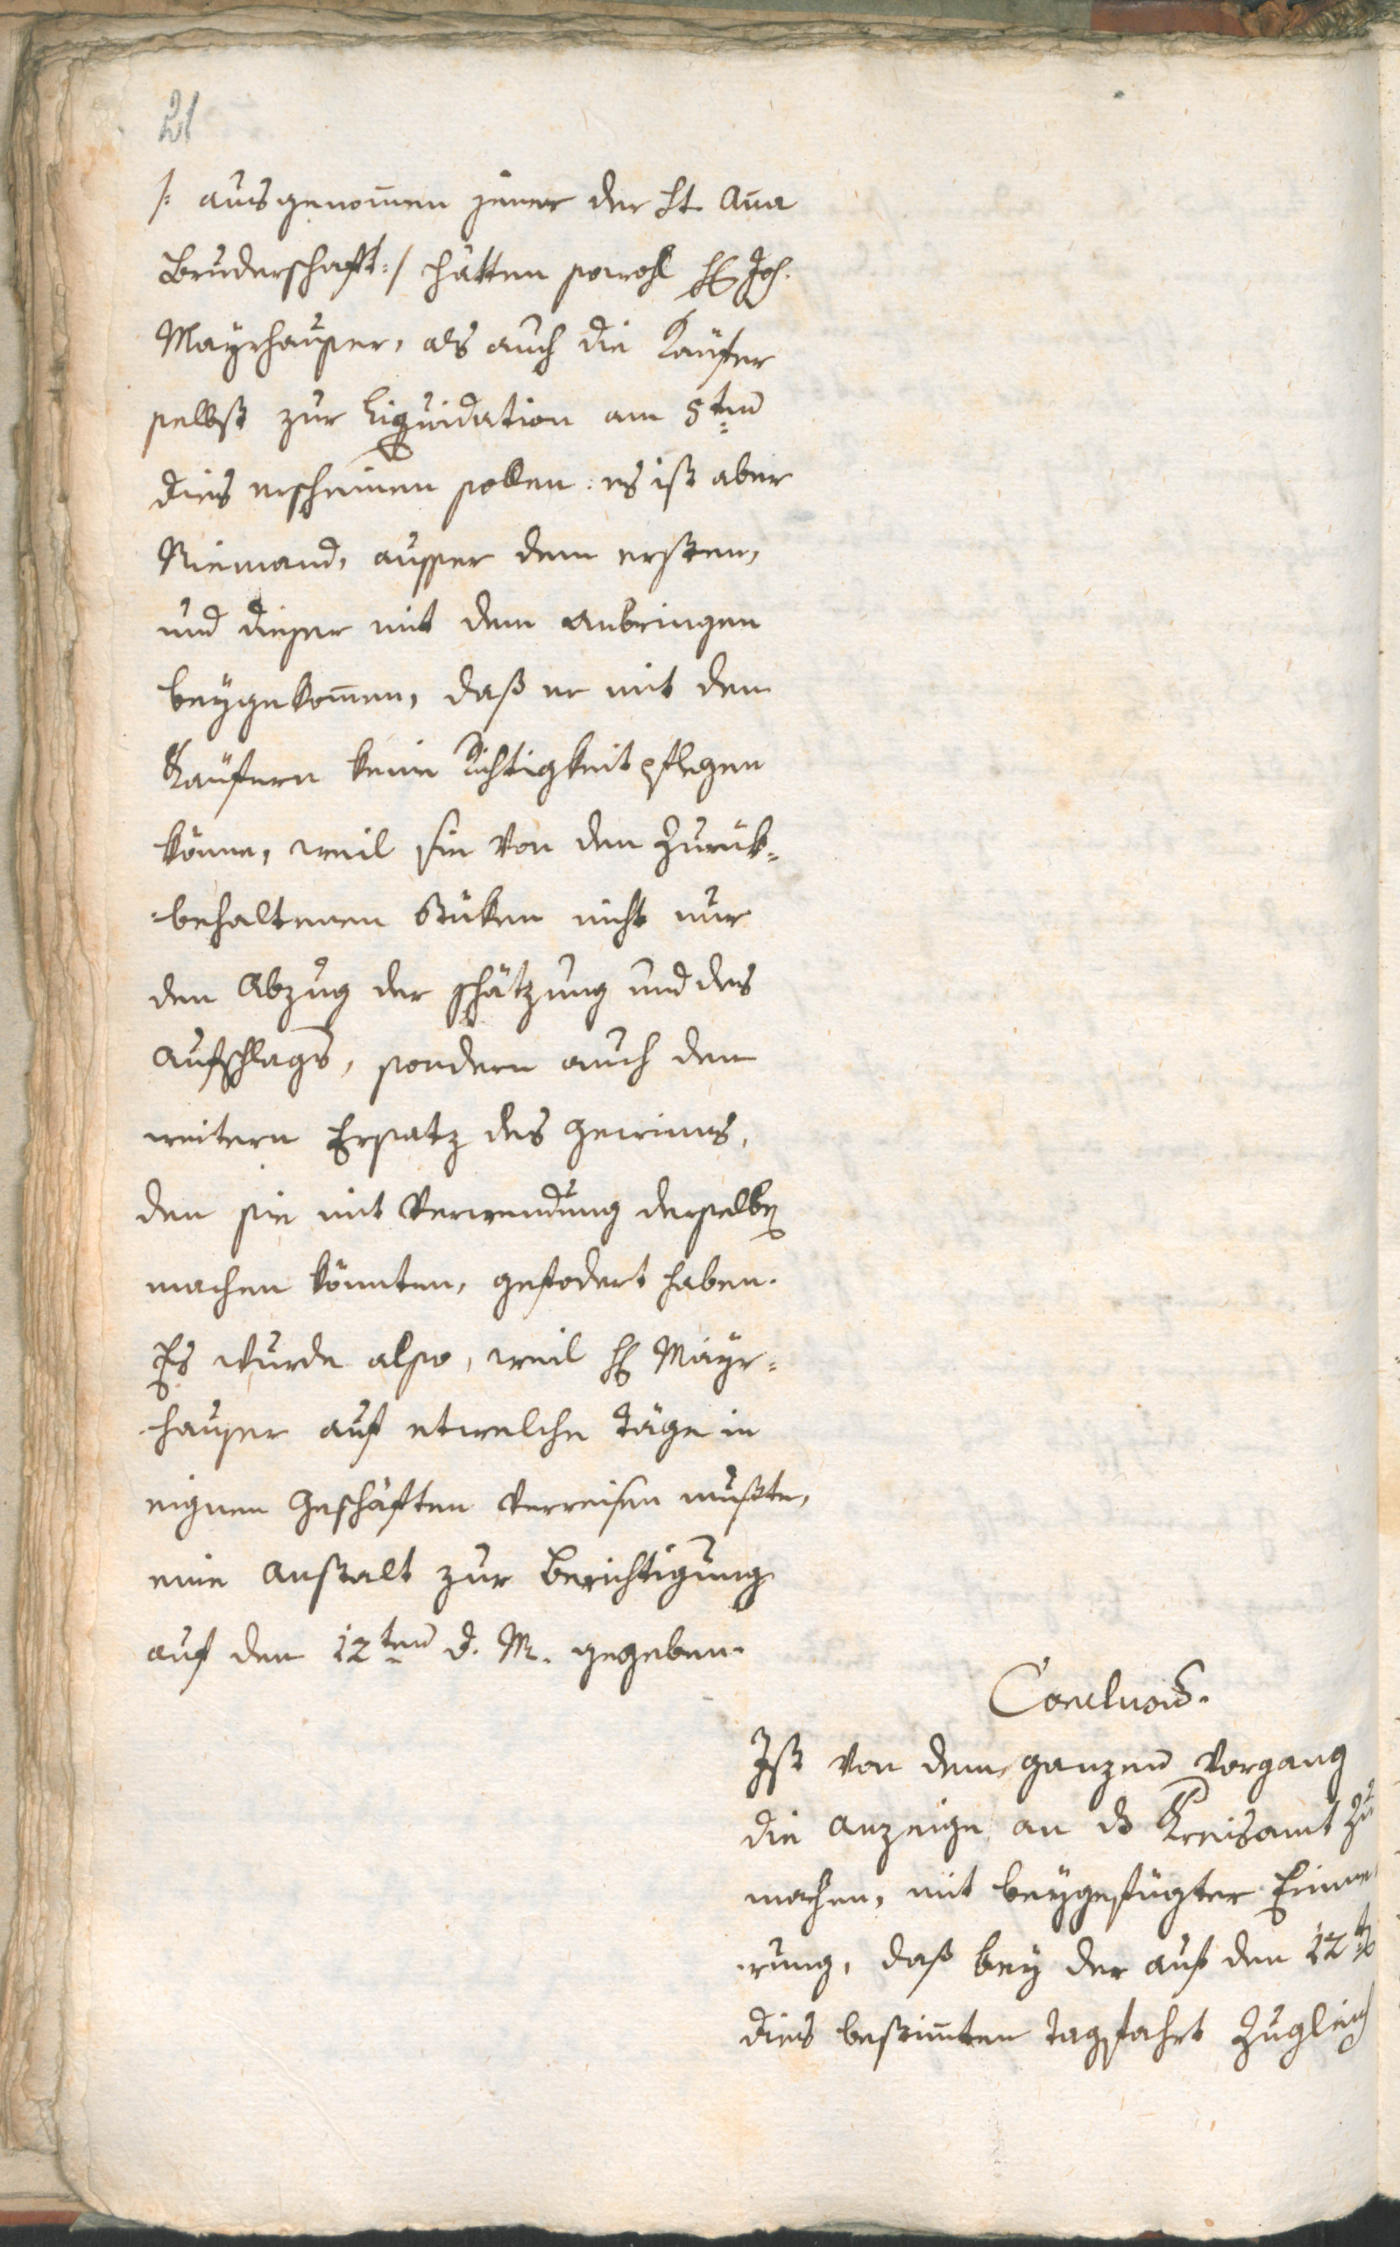 21
/: ausgenom̄en jener der St. Aña
Bruderschaft :/ hätten sowohl H Joh.
Mayrhauser, als auch die Käufer
selbst zur Liquidation am 5ten
dies erscheinen sollen: es ist aber
Niemand, ausser dem ersten,
und dieser mit dem Anbringen
beygekom̄en, daß er mit den
Käufern keine Richtigkeit pflegen
könne, weil sie von den Zurük-
behaltenen Stüken nicht nur
den Abzug der Schätzung und des
Aufschlags, sondern auch den
weitern Ersatz des Gewinns,
den sie mit Verwendung derselben
machen könnten, gefodert haben.
Es wurde also, weil H Mayr-
hauser auf etwelche Täge in
eignen Geschäften verreisen mußte,
eine Anstalt zur Berichtigung
auf den 12ten d. M. gegeben.
Conclusum.
Ist von dem ganzen Vorgang
die Anzeige an ds Kreisamt zu
machen, mit beygefügter Erinne
rung, daß bey der auf den 12t
dies bestim̄ten Tagsfahrt zugleich